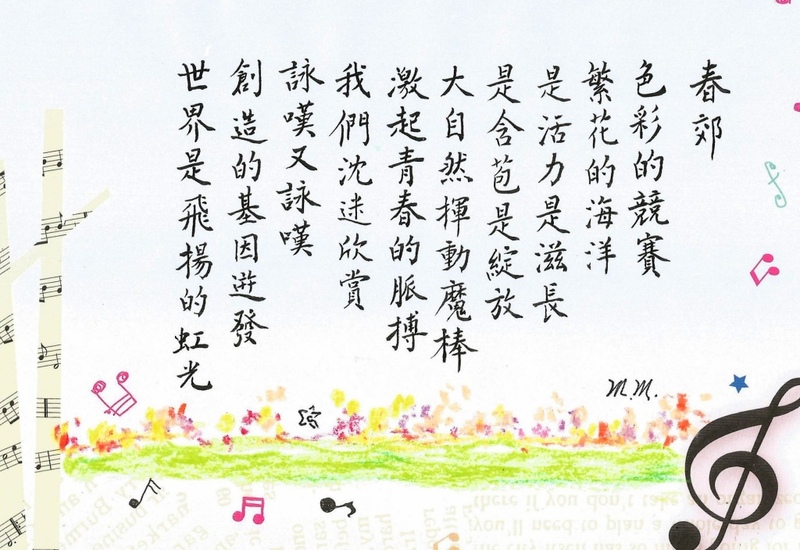 春郊
色彩的競賽
繁花的海洋
是活力是滋長
是含苞是綻放
大自然揮動魔棒
激起青春的脈搏
我們沈迷欣賞
詠嘆又詠嘆
創造的基因迸發
世界是飛揚的虹光
M.M.
there if you don't take an
you'll need to plan a